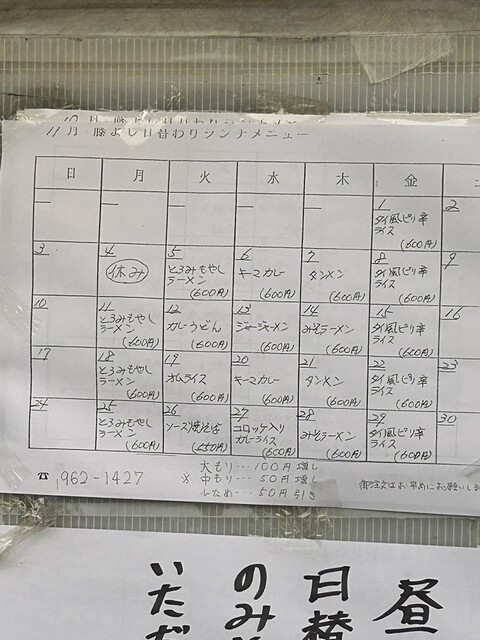 11月 藤よし日替わりランチメニュー
日 月 火 水 木 金
ー ー ー ー ー 1 2
タイ風ピリ辛
ライス
(600円)
3 4 5 6 7 8 9
休み とろみもやし
ラーメン キーマカレー タンメン タイ風ピリ辛
ライス
(600円) (600円) (600円) (600円)
10 11 12 13 14 15 16
とろみもやし
ラーメン カレーうどん ジャージャーメン みそラーメン タイ風ピリ辛
ライス
(600円) (600円) (600円) (600円) (600円)
17 18 19 20 21 22 23
とろみもやし
ラーメン オムライス キーマカレー タンメン タイ風ピリ辛
ライス
(600円) (600円) (600円) (600円) (600円)
24 25 26 27 28 29 30
とろみもやし
ラーメン ソース焼そば コロッケ入り
カレーライス みそラーメン タイ風ピリ辛
ライス
(600円) (550円) (600円) (600円) (600円)
☎ 962-1427
大もり…100円増し
※中もり…50円増し
少なめ…50円引き
御注文はお早めにお願いしま
昼
日替
のみ
いただ